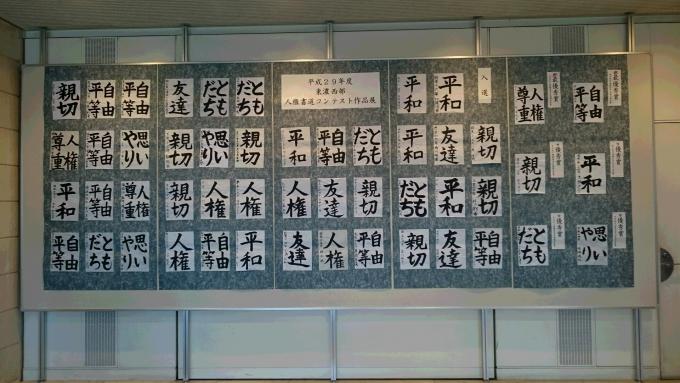 平成29年度
東濃西部
人権書道コンテスト作品展
親切
自由
平等
自由
平等
人権
尊重
自由
平等
思い
やり
平和
自由
平等
人権
尊重
自由
平等
とも
だち
思い
やり
友達
とも
だち
とも
だち
親切
思い
やり
親切
親切
人権
人権
人権
自由
平等
平和
平和
自由
平等
とも
だち
人権
友達
親切
友達
人権
自由
平等
平和
平和
入選
平和
友達
親切
とも
だち
平和
親切
親切
友達
自由
平等
最優秀賞
人権
尊重
最優秀賞
自由
平等
優秀賞
親切
優秀賞
平和
優秀賞
とも
だち
優秀賞
思い
やり